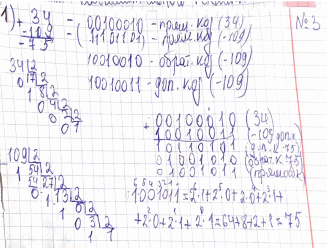 №3
1) + 34 = 00100010 - прям. код (34)
-109 = (11101101) - прям. код (-109)
-75
10010010 - обрат. код (-109)
10010011 - доп. код (-109)
34|2
0 17|2
1 8|2
0 4|2
0 2|2
0 1
+ 00100010 (34)
10010011 (-109 доп.)
10110101 (доп. к 75)
10110100
1001011 (прямой код)
109|2
1 54|2
0 27|2
1 13|2
1 6|2
0 3|2
1 1
6 5 4 3 2 1 0
1001011 = 2·1+2·0+2·0+2·1+
+2·0+2·1+2·1=64+8+2+1=75